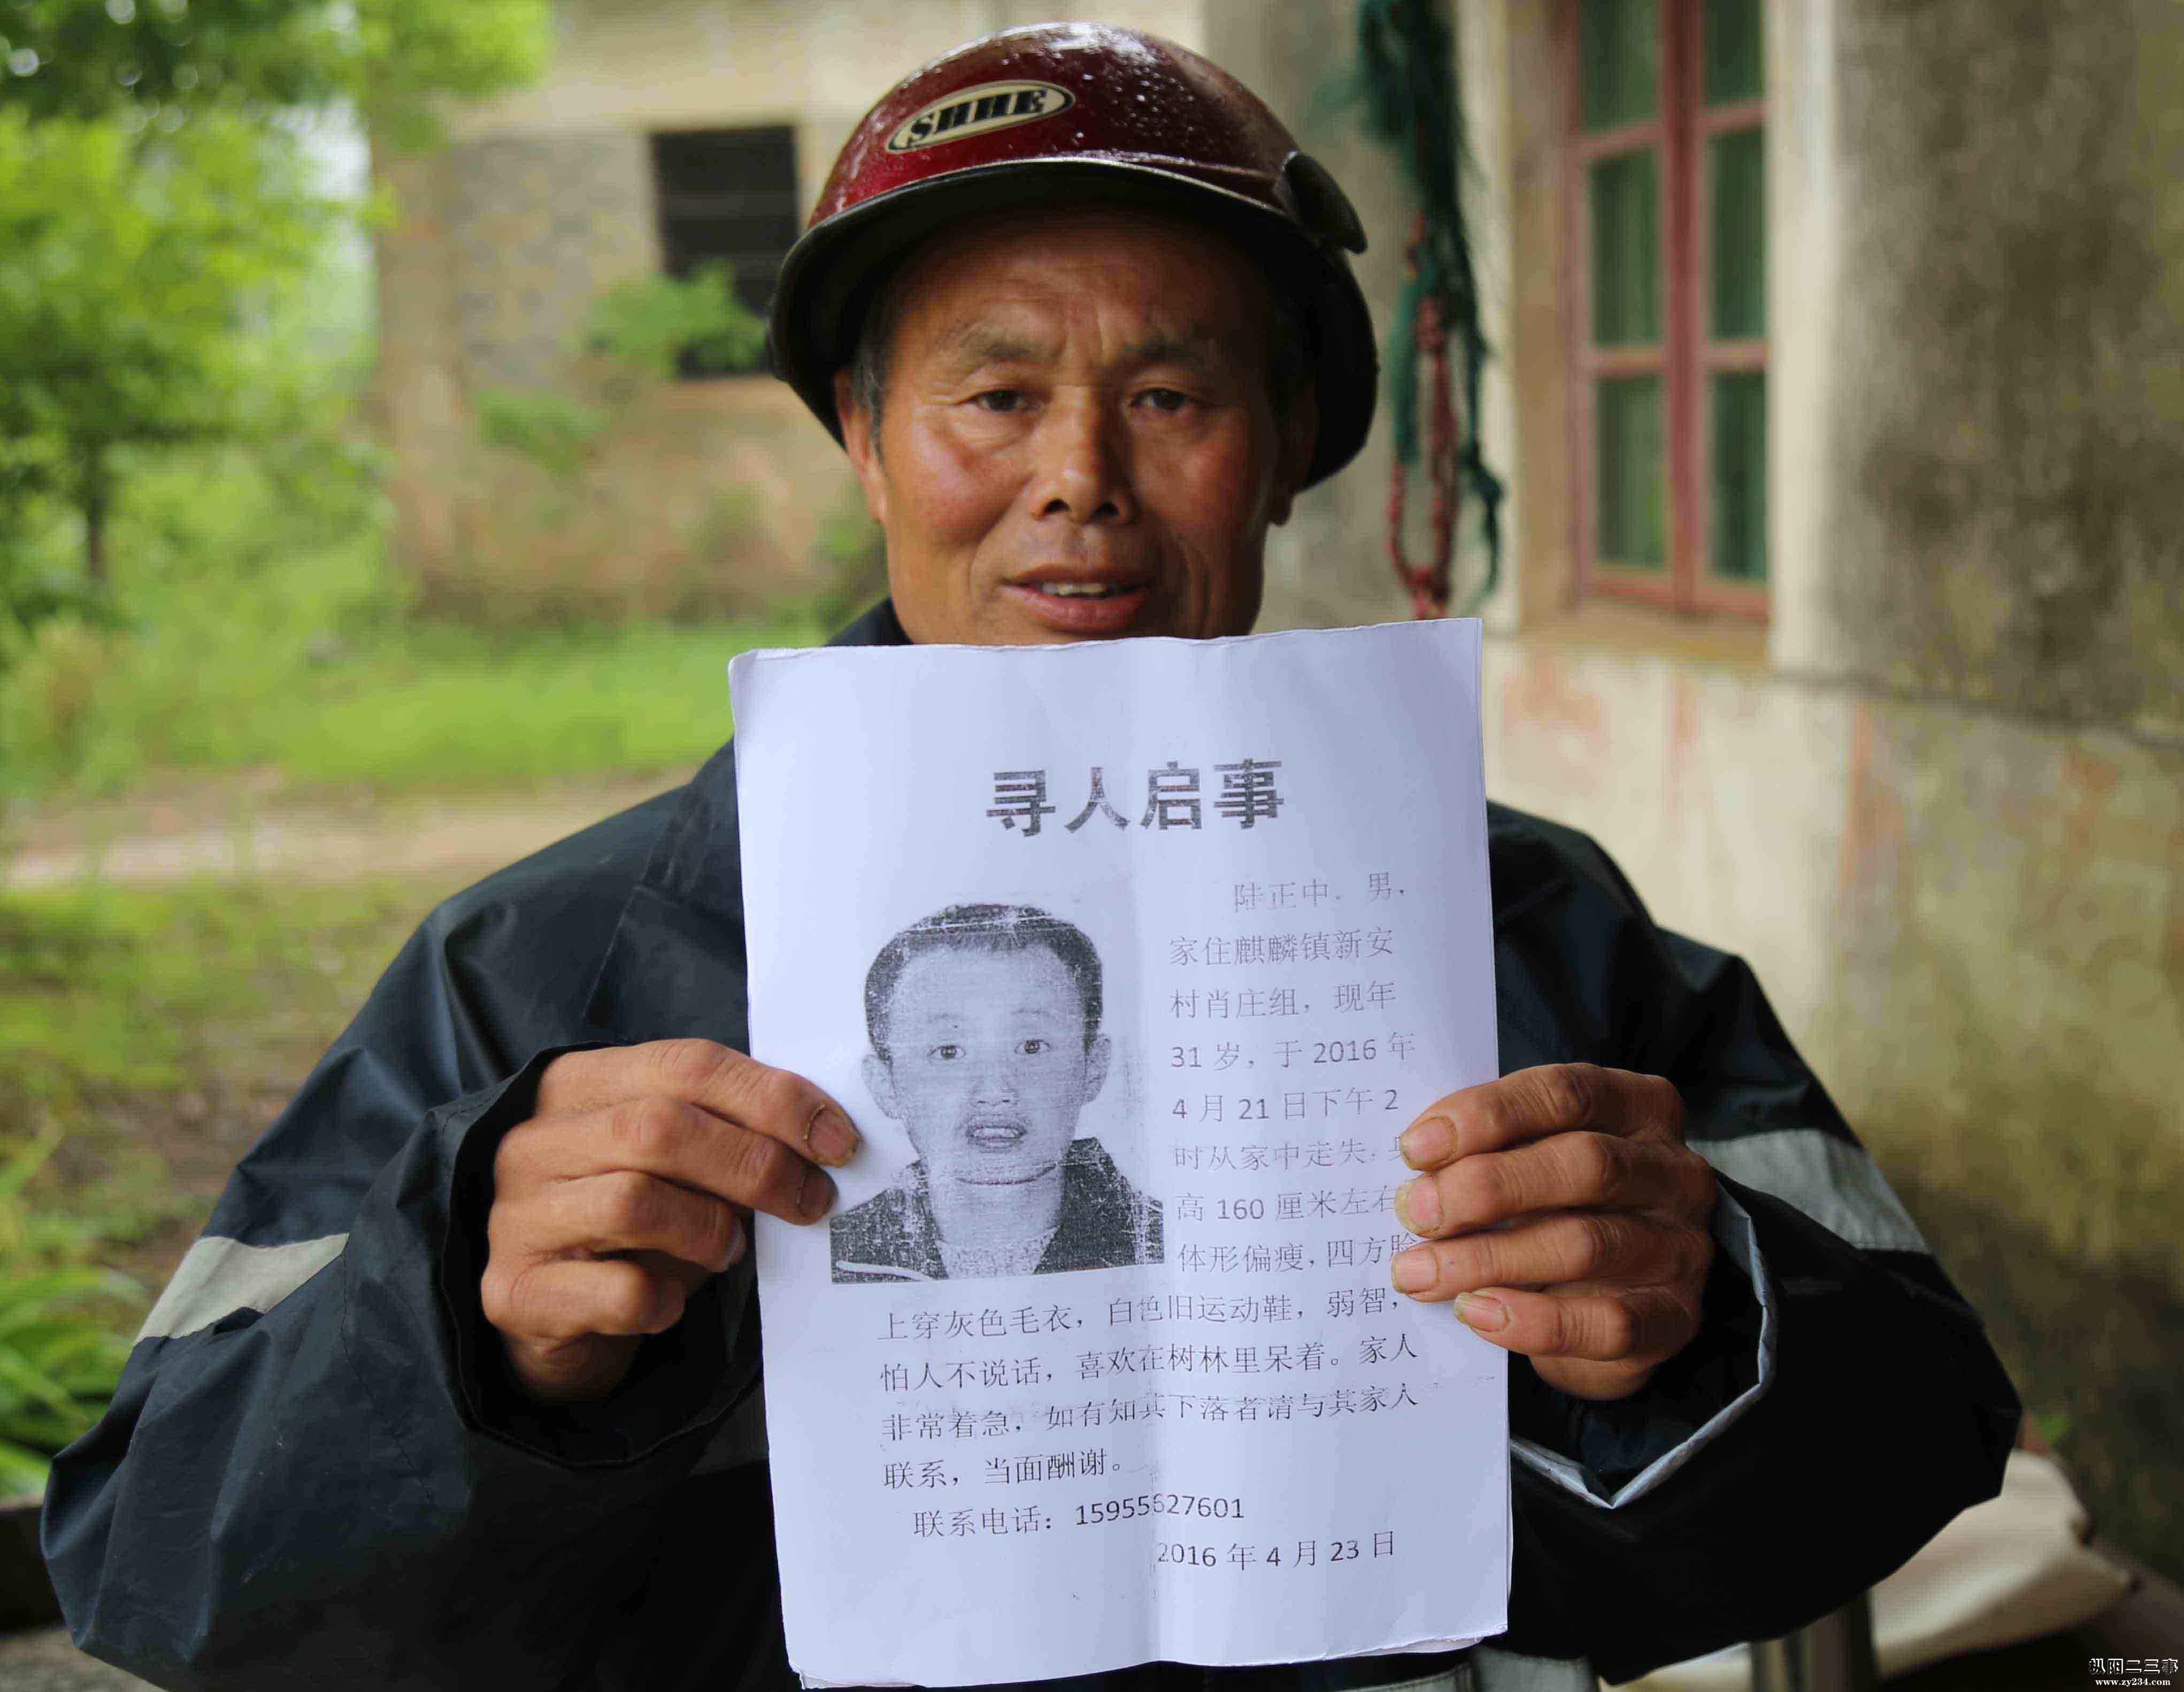 SHHE
寻人启事
陆正中，男，
家住麒麟镇新安
村肖庄组，现年
31 岁，于 2016 年
4 月 21 日下午 2
时从家中走失，
高 160 厘米左右
体形偏瘦，四方脸
上穿灰色毛衣，白色旧运动鞋，弱智，
怕人不说话，喜欢在树林里呆着。家人
非常着急，如有知其下落者请与其家人
联系，当面酬谢。
联系电话：15955627601
2016 年 4 月 23 日
枞阳二三事
www.zy234.com